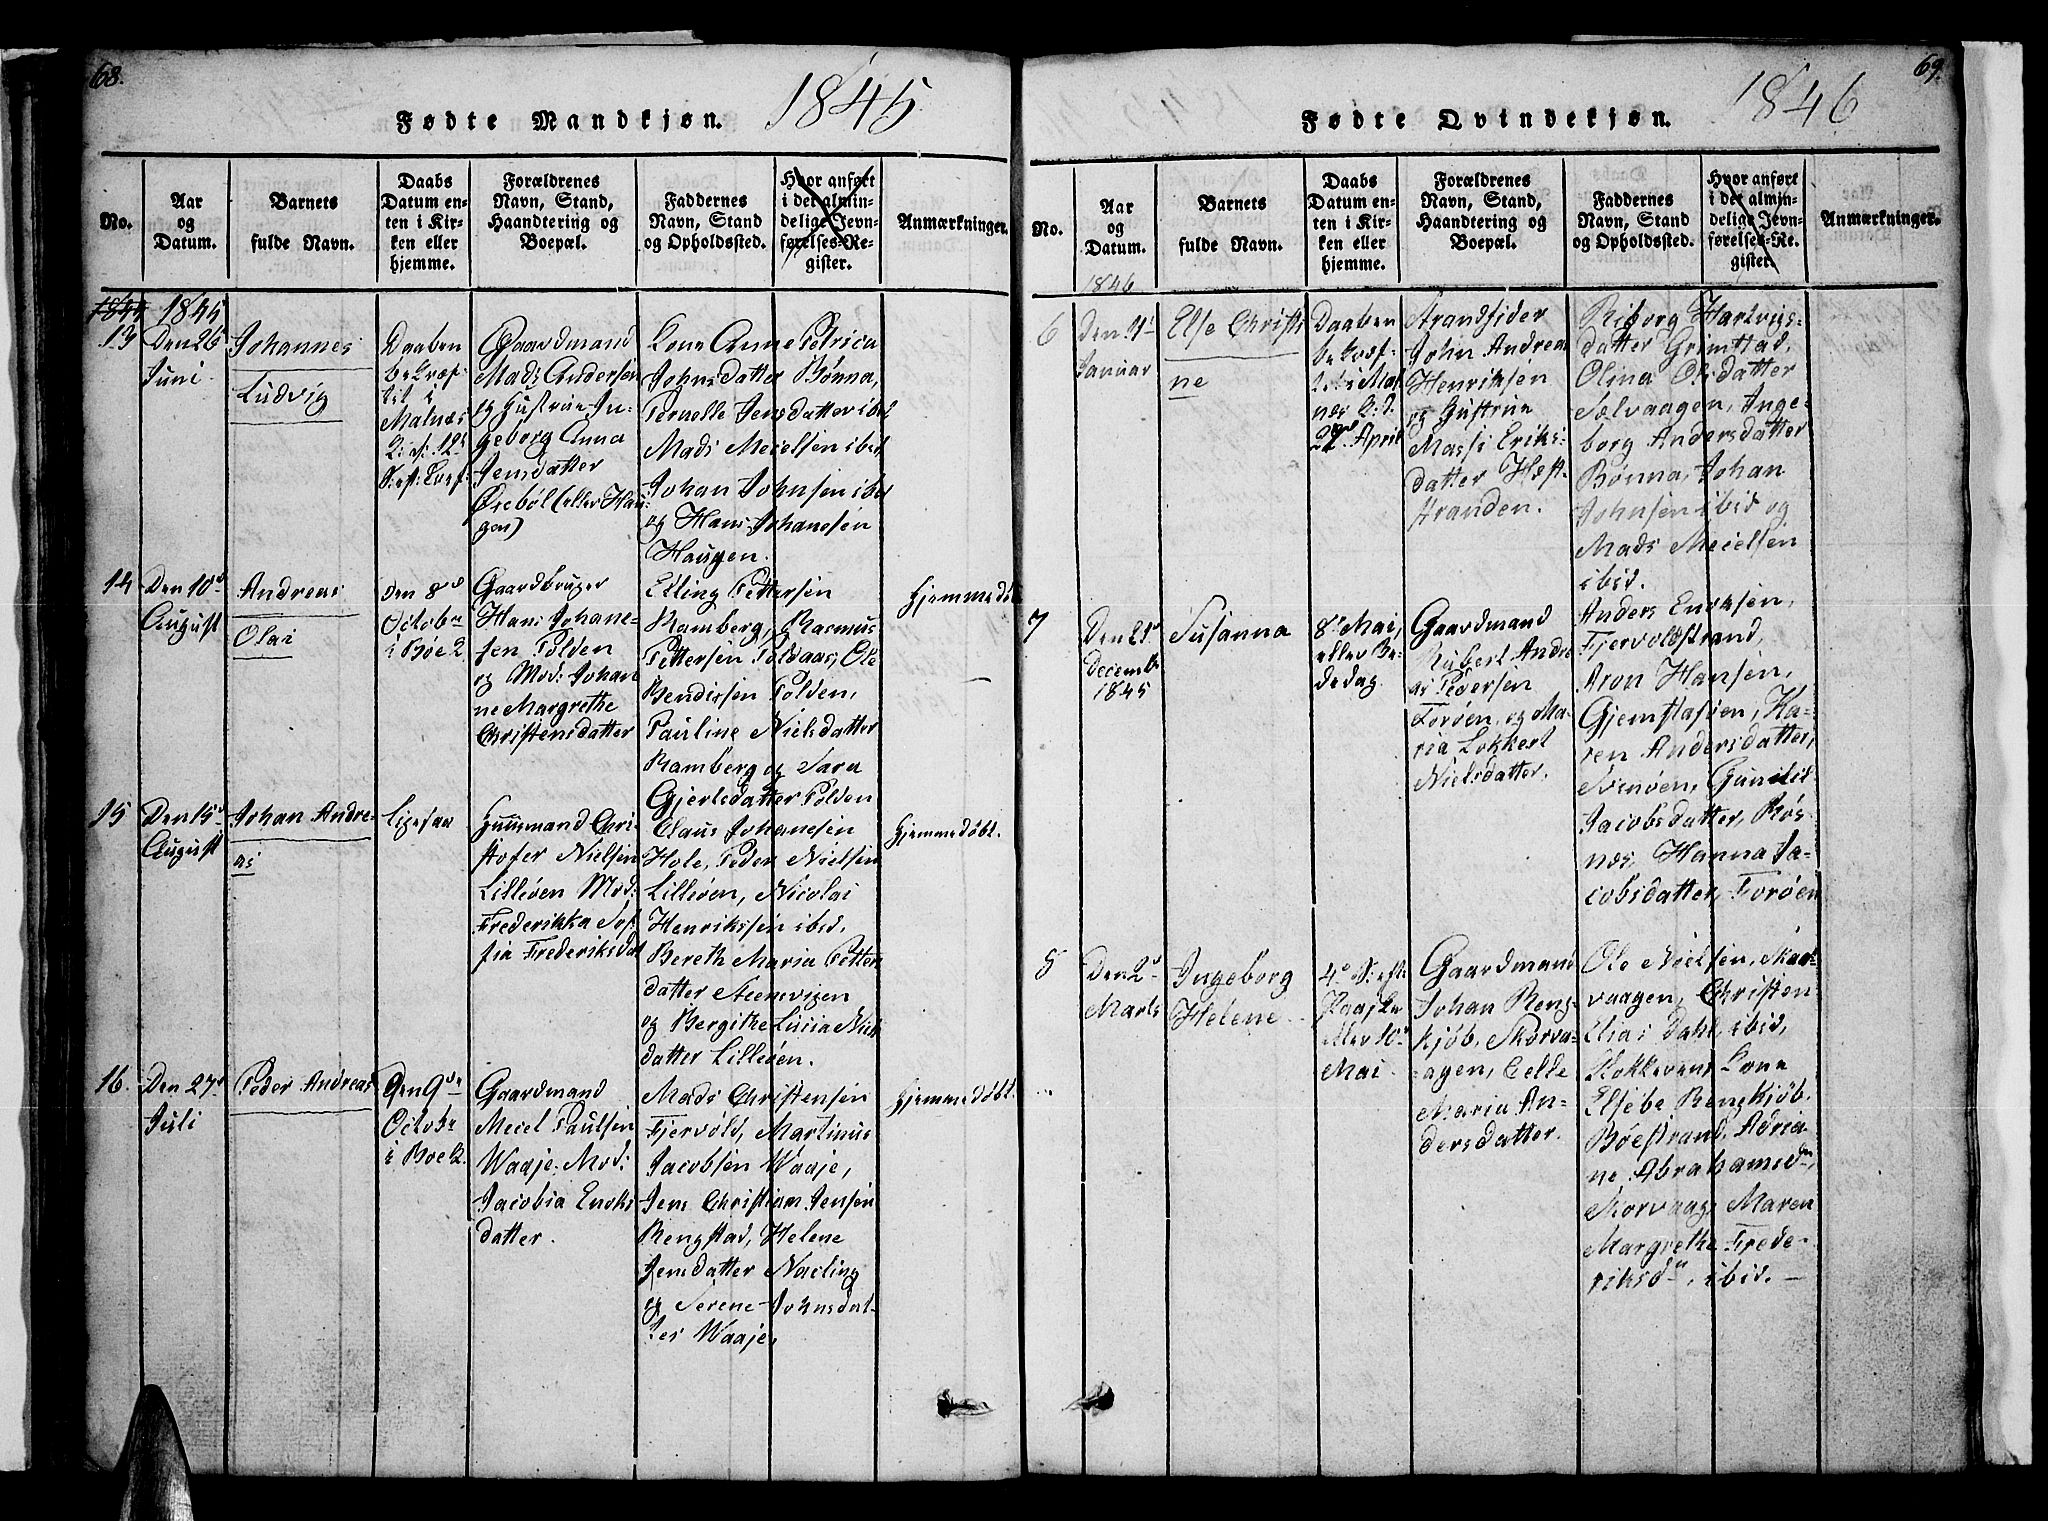 68.
Fødte Mandkjøn. 1845
No.
Aar
og
Datum.
Barnets
fulde Navn.
Daabs
Datum en-
ten i Kir-
ken eller
hjemme.
Forældrenes
Navn, Stand,
Haandtering og
Boepæl.
Faddernes
Navn, Stand
og Opholdssted.
Hvor anført
i det almin-
delige Jevn-
førelses-Re-
gister.
Anmærkninger.
1844 1845
13
Den 26
Juni
Johannes
Ludvig
Daaben
bekræf-
tet i
Malnæs
Gaardmand
Mads Andersen
og Hustrue In-
geborg Anna
Jensdatter
Ørebøl (eller Hau-
gen)
Kone Anne Petrica
Johnsdatter Bønna,
Pernelle Jensdatter ibid
Mads Meielsen ibid
Johan Johnsen ibid
og Hans Johanesen
Haugen.
14
Den 10d
August
Andreas
Olai
den 8d
Octobr
i Bøe K.
Gaardbruger
Hans Johane-
sen Polden
og Mod: Johan
ne Margrethe
Christensdatter
Elling Pettersen
Ramberg, Rasmus
Pettersen Poldaas, Ole
Bendixsen Polden,
Pauline Nielsdatter
Ramberg og Sara
Gjertsdatter Polden
Hjemmedøbt
15
Den 15d
August
Johan Andre-
as
Ligesaa
Huusmand Chri-
stofer Nielsen
Lilleøen Mod:
Frederikka Sof-
fia Frederiksdat
Claus Johanesen
Hole, Peder Nielsen
Lilleøen, Nicolai
Henrikssen ibid,
Bereth Maria Petters
datter Steensvigen
og Bergithe Lucia Niels
datter Lilleøen.
Hjemmedøbt.
16.
Den 27d
Juli
Peder Andreas
Den 9de
Octobr
i Boe K.
Gaardmand
Meiel Paulsen
Waaje. Mod:
Jacobia Enoks
datter.
Mads Christensen
Fjervold, Martinus
Jacobsen Waaje,
Jens Christian Jensen
Rengstad, Helene
Jensdatter Næling
og Serene Johnsdat-
ter Waaje.
Hjemmedøbt.
69.
Fødte Qvindekjøn. 1846
No.
Aar
og
Datum.
Barnets
fulde Navn.
Daabs
Datum en-
ten i Kir-
ken eller
hjemme.
Forældrenes
Navn, Stand,
Haandtering og
Boepæl.
Faddernes
Navn, Stand
og Opholdssted.
Hvor anført
i det almin-
delige Jevn-
førelses-Re-
gister.
Anmærkninger.
1846
6
Den 31
Januar
Else Christi
ne
Daaben
bekræf-
tet i Mal
næs K: d.
27d April
Strandsider
John Andrea
Henriksen
og Hustrue
Massi Eriks-
datter Høft-
stranden.
Riborg Hartvigs-
datter Grimstad,
Olina Olsdatter
Sælvaagen, Inge-
borg Andersdatter
Bønna, Johan
Johnsen ibid og
Mads Meielsen
ibid.
7
Den 21d
Decembr
1845
Susanna
8d Mai,
eller Be-
dedag.
Gaardmand
Rubert Andre
as Pedersen
Forøen, og Ma-
ria Lokkert
Nielsdatter.
Anders Enoksen,
Fjervoldstrand,
Aron Hansen,
Gjemstasøen, Ka-
ren Andersdatter,
Svinøen, Gunild
Jacobsdatter, Røs-
næs, Hanna Ja-
cobsdatter, Forøen
5
Den 2d
Marts
Ingeborg
Helene
4d S: eft:
Paaske
eller 10d
Mai
Gaardmand
Johan Reng-
kjøb, Skorva-
agen, Celle
Maria An-
dersdatter.
Ole Nielsen, Skor-
vaagen, Christen
Elias Dahl, ibid,
Klokkerens Kone
Elsebe Rengkjøb,
Bøestrand, Adria
ne Abrahamsdr,
Skorvaag, Maren
Margrethe Frede-
riksdr, ibid.